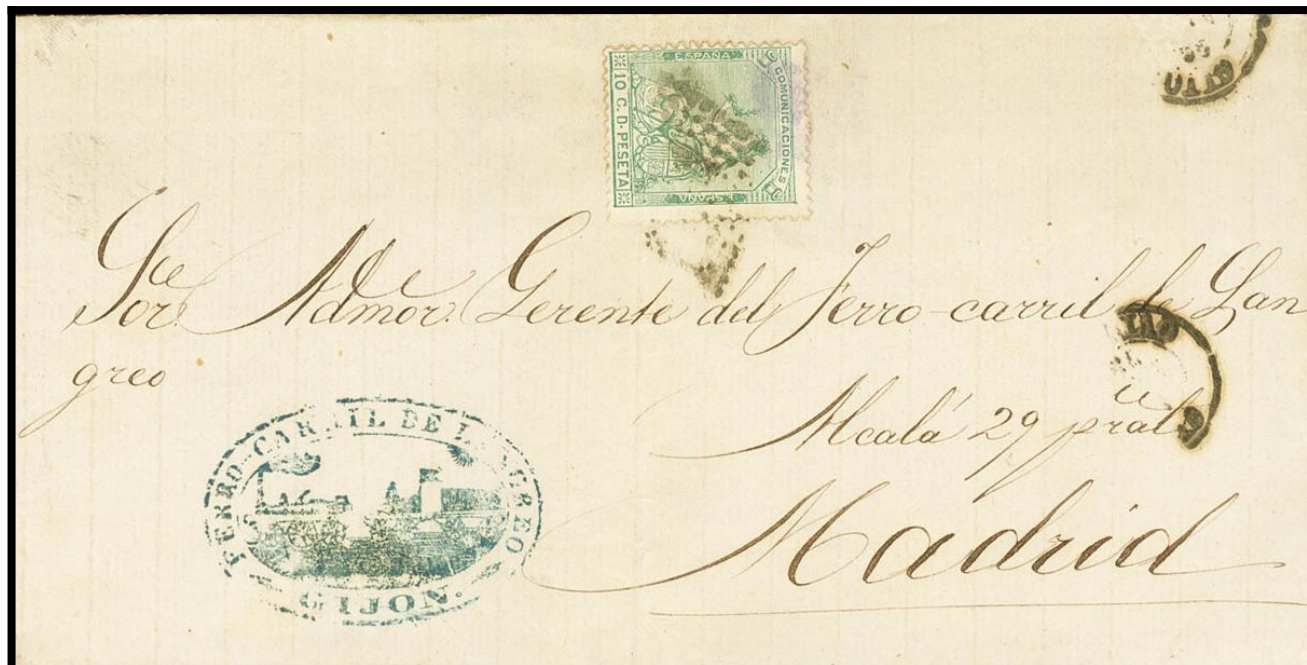 ESPAÑA
COMUNICACIONES
10 C. D. PESETA
ESPAÑA
Sor. Admor. Gerente del Ferro-carril de Lan
greo
Alcalá 29 pral
Madrid
FERRO-CARRIL DE LANGREO
GIJON.